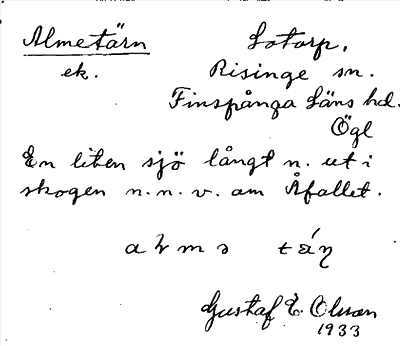 Almetärn Lotorp,
ek. Risinge sn.
Finspånga läns hd.
Ögl
En liten sjö långt n. ut i
skogen n. n. v. om Åfallet.
Gustaf E. Olsson
1933